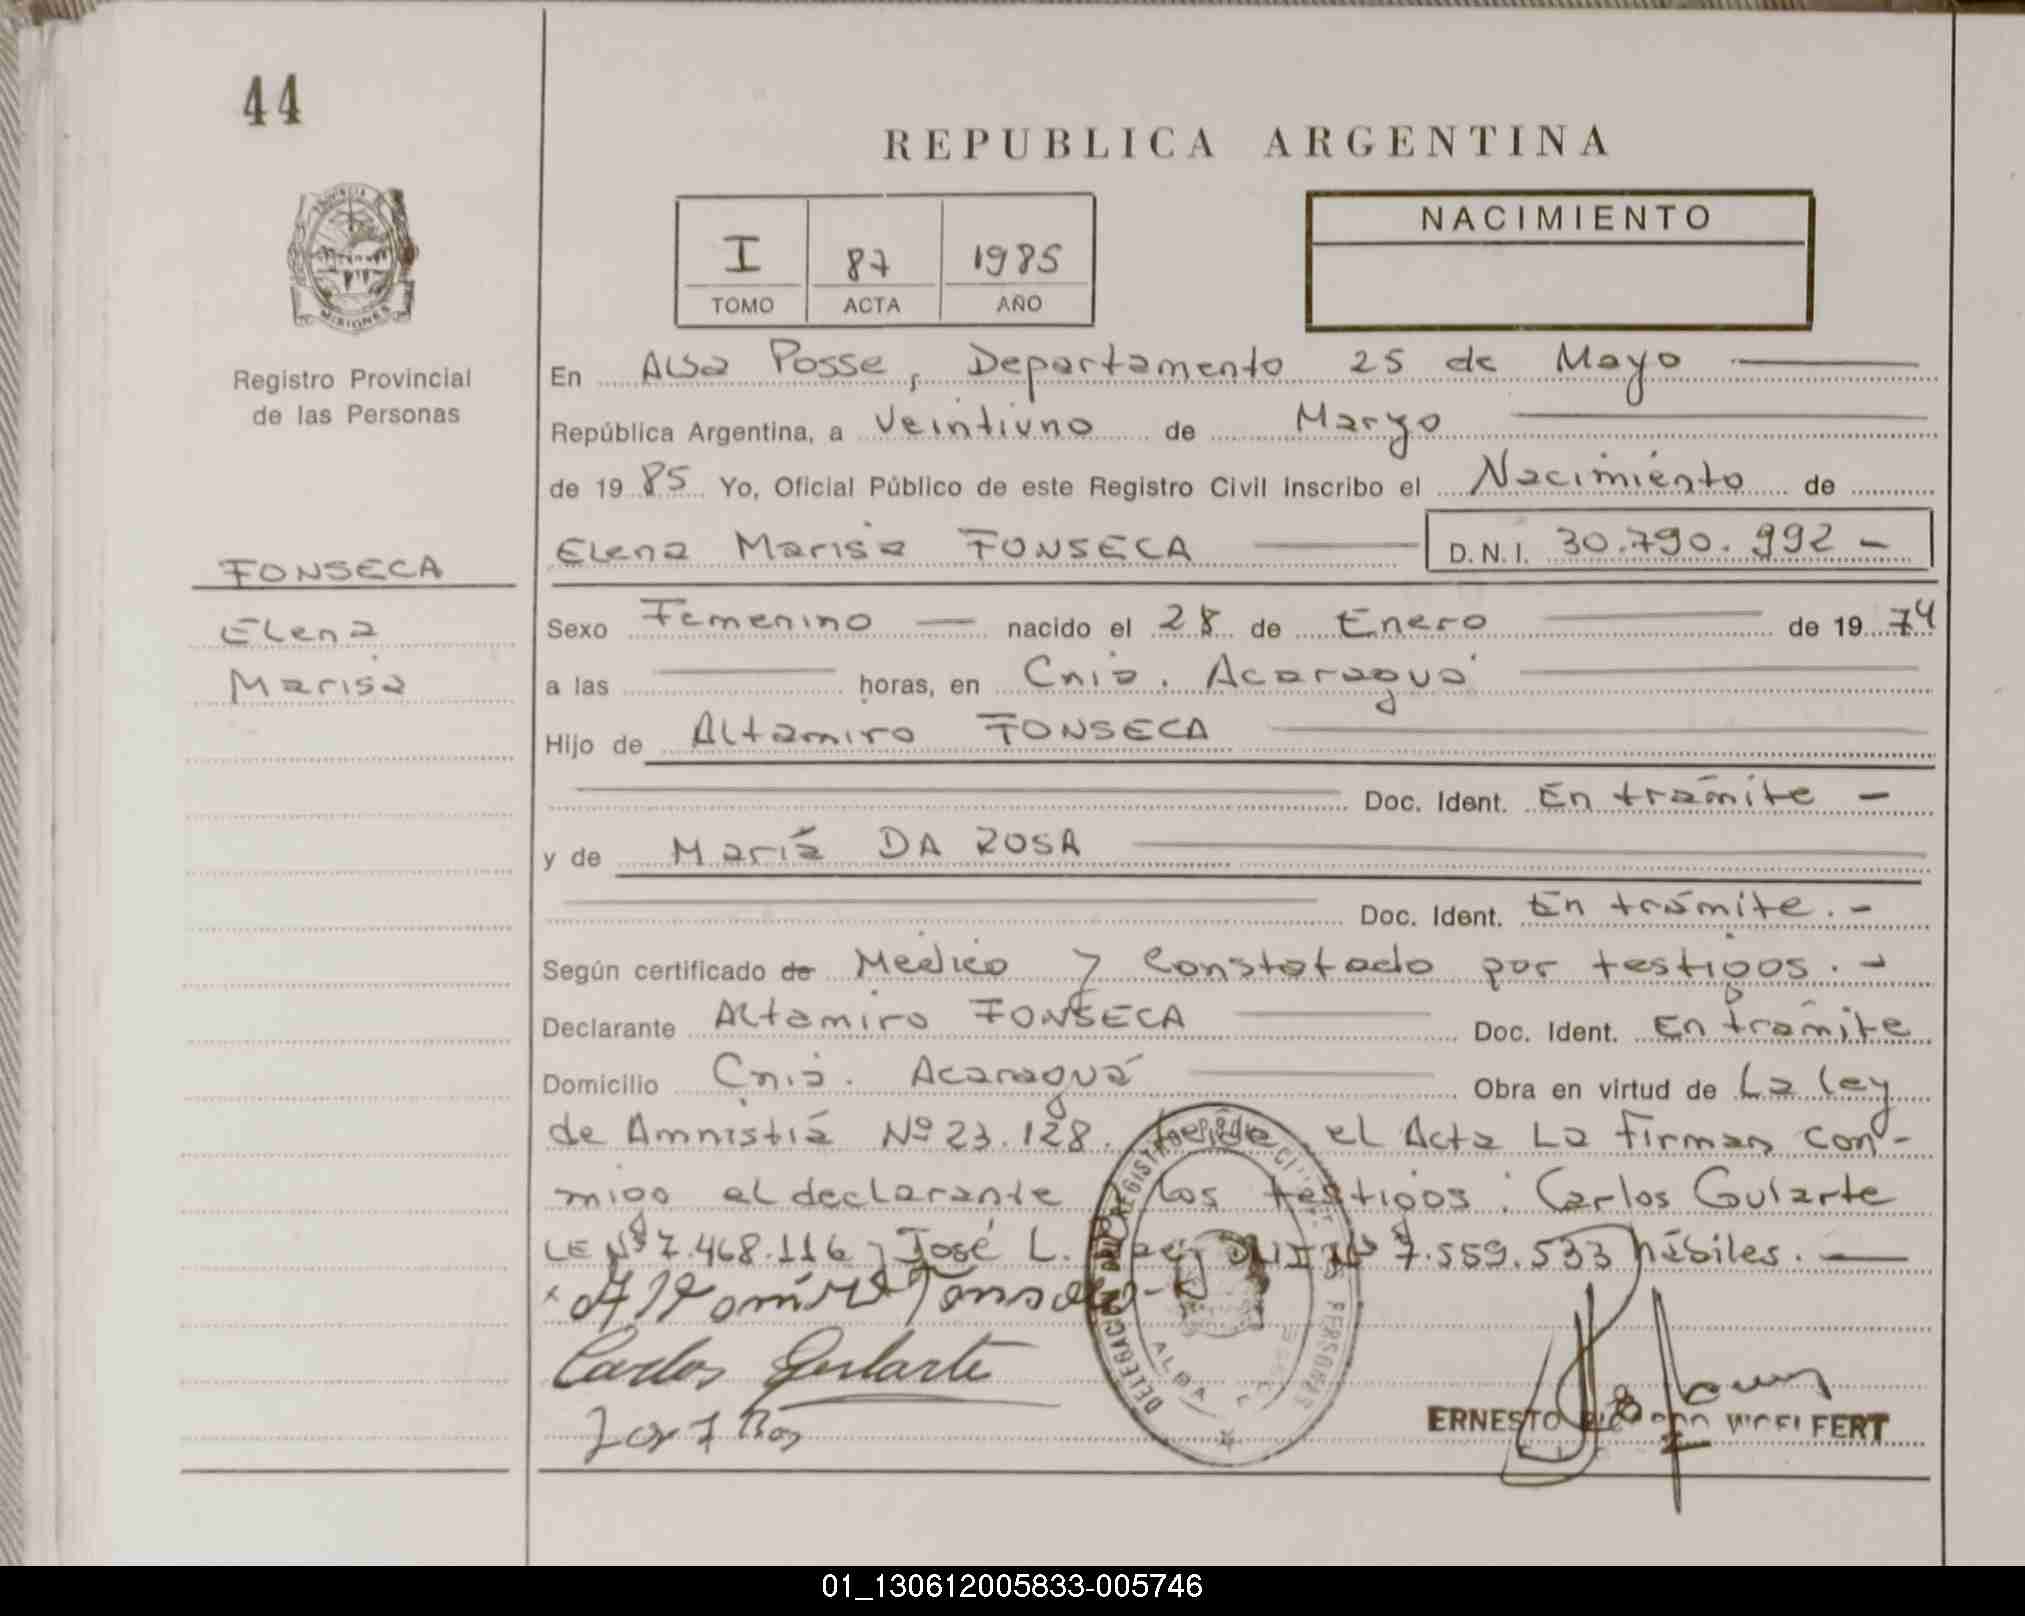 44
REPUBLICA ARGENTINA
PROVINCIA DE
MISIONES
I 87 1985
TOMO ACTA AÑO
NACIMIENTO
Registro Provincial
de las Personas
FONSECA
Elena
Marisa
En Alba Posse, Departamento 25 de Mayo
República Argentina, a Veintiuno de Marzo
de 19 85 Yo, Oficial Público de este Registro Civil inscribo el Nacimiento de
Elena Marisa FONSECA D.N.I. 30.790.992 -
Sexo Femenino nacido el 28 de Enero de 19 74
a las horas, en Cnia. Acaraguá
Hijo de Altamiro FONSECA
Doc. Ident. En trámite -
y de María DA ROSA
Doc. Ident. En trámite. -
Según certificado de Médico y Constatado por testigos. -
Declarante Altamiro FONSECA Doc. Ident. En trámite
Domicilio Cnia. Acaraguá Obra en virtud de La ley
de Amnistía Nº 23.128. el Acta La Firman con-
migo el declarante los testigos: Carlos Gularte
LE Nº 7.468.116 y José L. Nº 7.559.533 hábiles.
x Altamiro Fonseca
Carlos Gularte
ERNESTO FERT
DELEGACION REGISTRO PERSONAS
ALBA POSSE
01_130612005833-005746